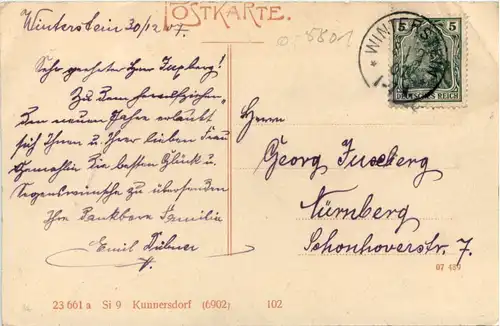 POSTKARTE.
Winterstein 30/12 07.
Sehr geehrter Herr Juxberg!
Zu dem bevorstehenden
neuen Jahre erlaubt
sich Ihnen u Ihrer lieben Frau
Gemahlin die besten Glück u
Segenswünsche zu übersenden
Ihre dankbare Familie
Emil Hübner
WINTERSTEIN
5 5
DEUTSCHES REICH
Herrn
Georg Juxberg
Nürnberg
Schonhoverstr. 7.
07 439
23 661 a Si 9 Kunnersdorf (6902) 102